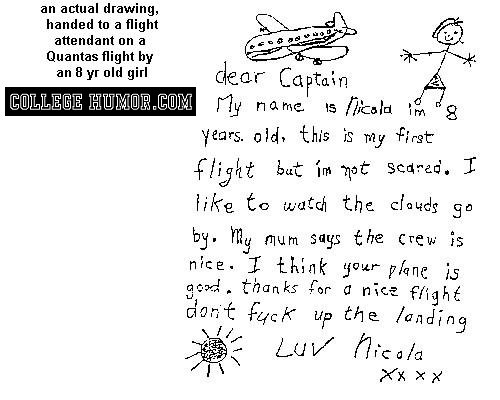 an actual drawing,
handed to a flight
attendant on a
Quantas flight by
an 8 yr old girl
COLLEGE HUMOR.COM
dear Captain
My name is Nicola im 8
years. old, this is my first
flight but im not scared. I
like to watch the clouds go
by. My mum says the crew is
nice. I think your plane is
good. thanks for a nice flight
don't fuck up the landing
Luv Nicola
xxxx